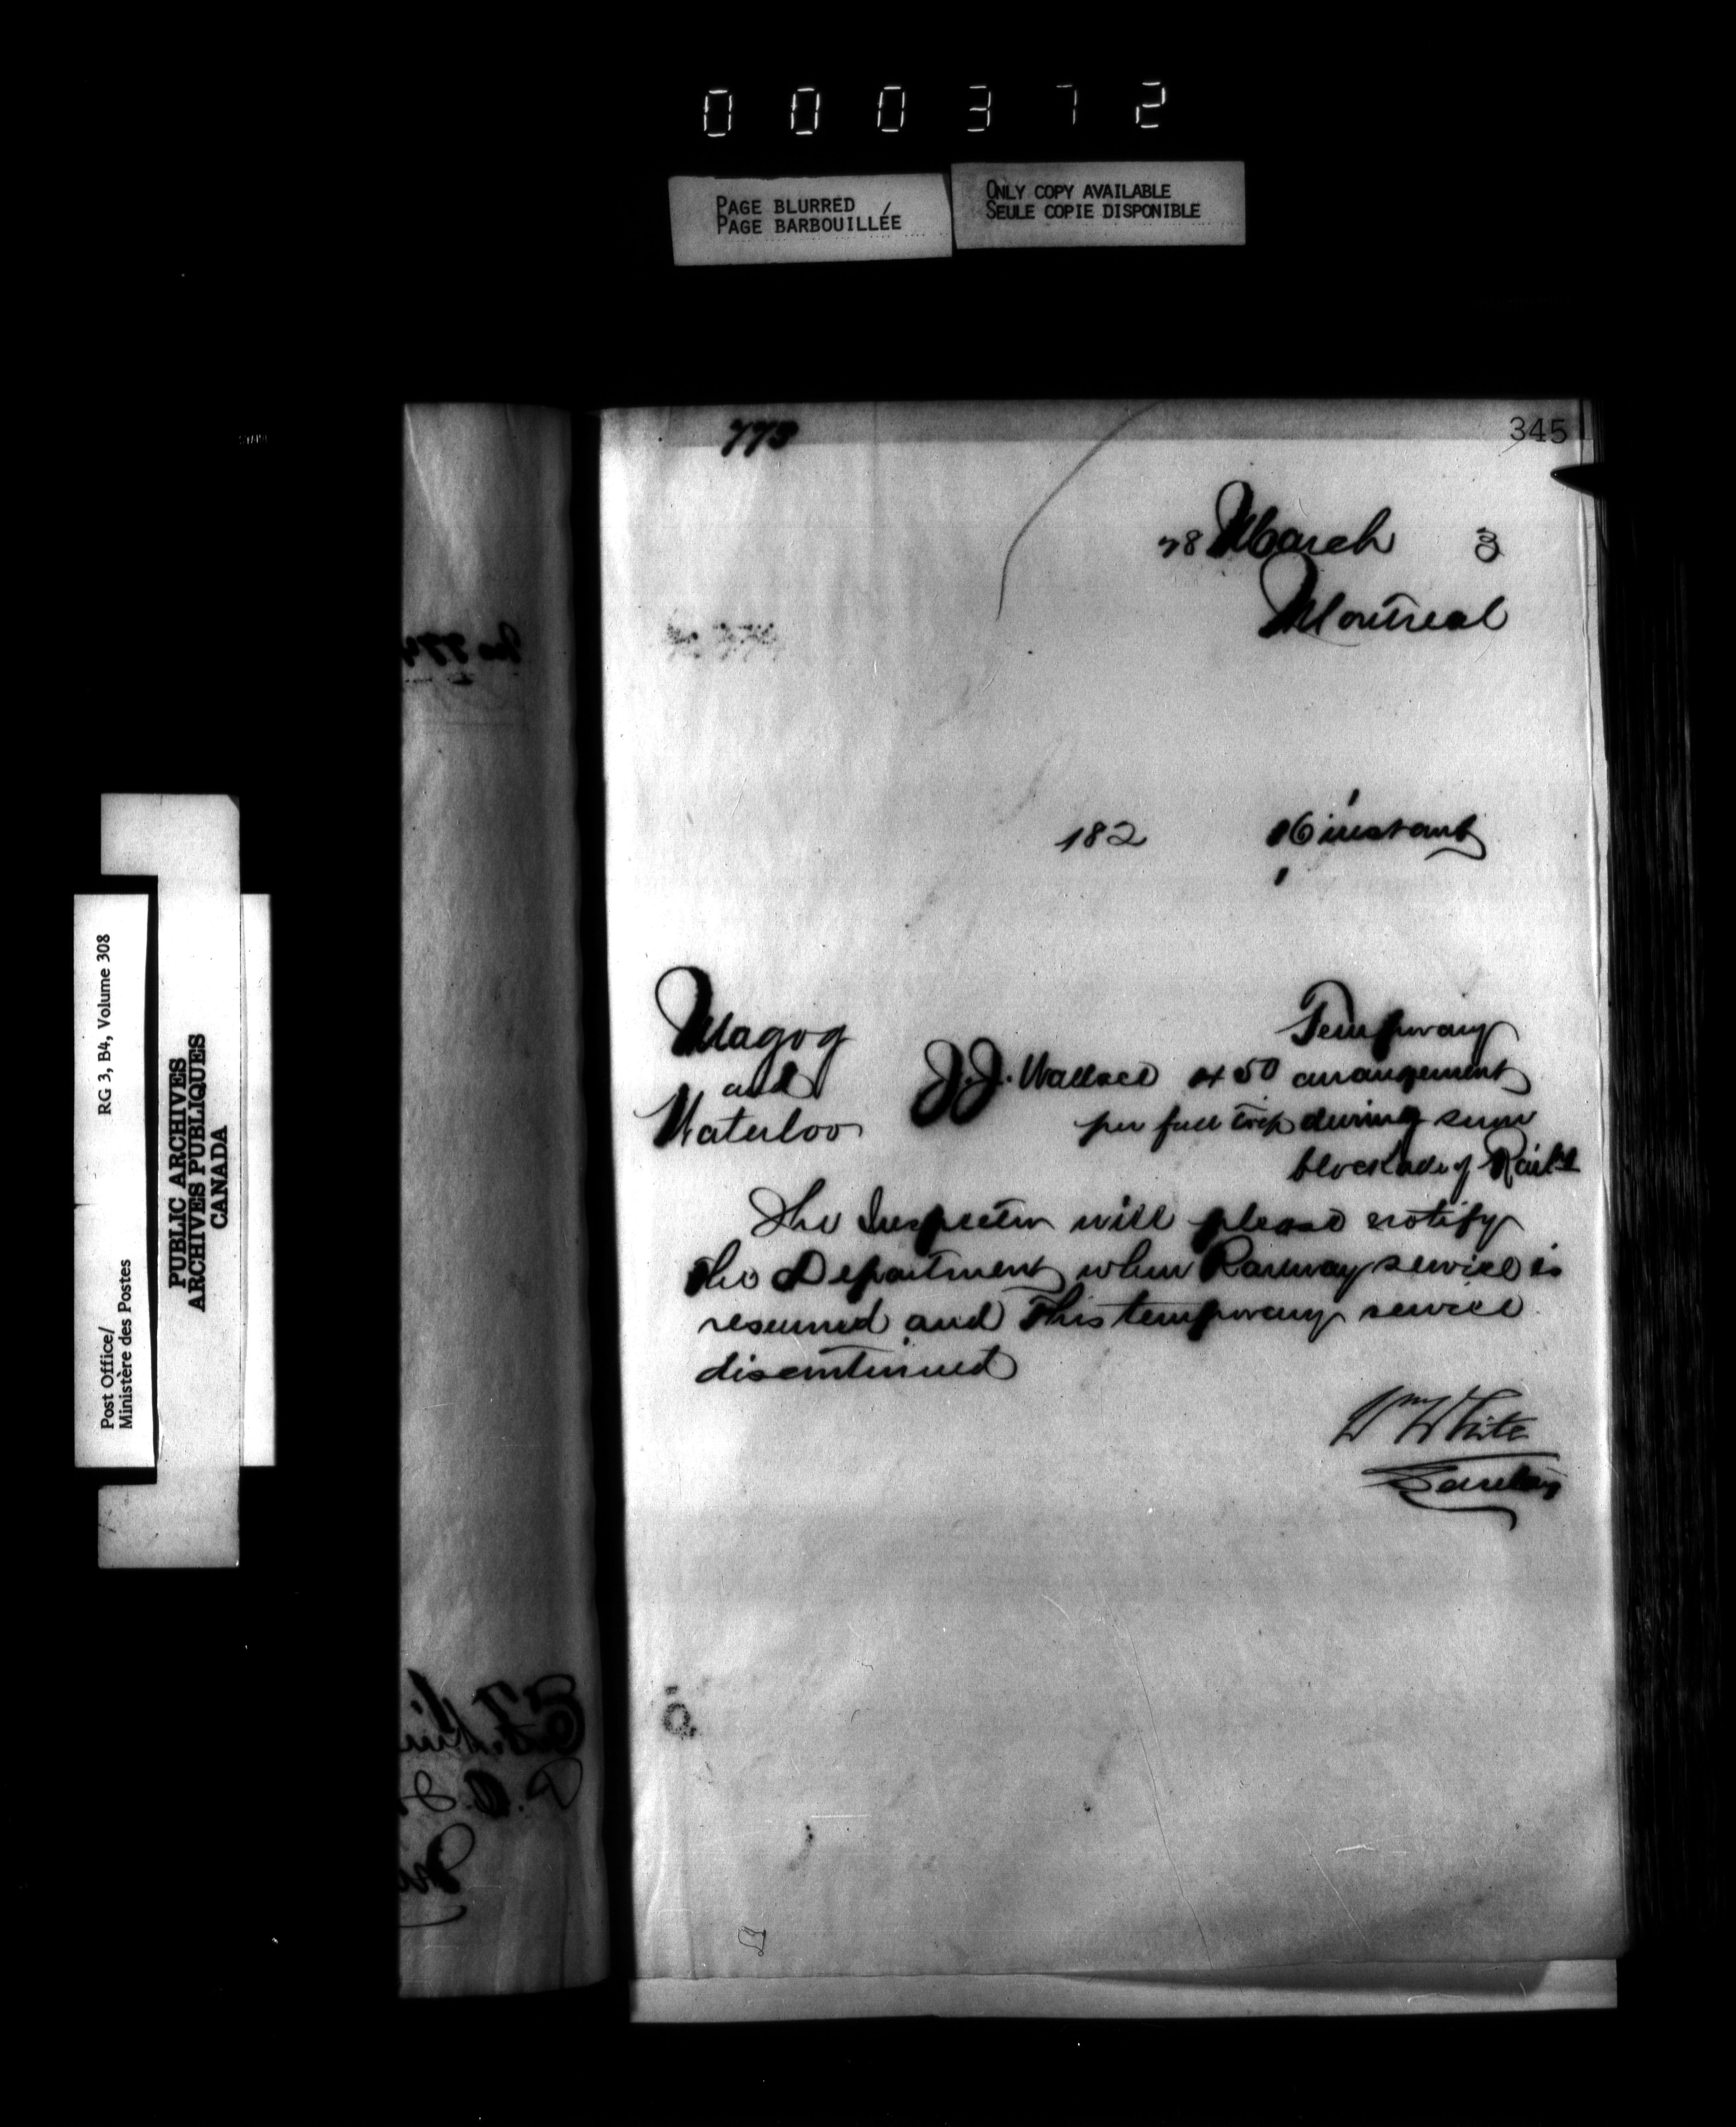 000372
PAGE BLURRED
PAGE BARBOUILLÉE
ONLY COPY AVAILABLE
SEULE COPIE DISPONIBLE
773
345
28 March 3
Montreal
182 16 instant
Magog
and
Waterloo
J. J. Wallace
$4 50
per full trip
Temporary
arrangement
during snow
blockade of Rail'd
The Inspector will please notify
the Department when Railway service is
resumed and this temporary service
discontinued
Wm White
Secretary
RG 3, B4, Volume 308
Post Office/
Ministère des Postes
PUBLIC ARCHIVES
ARCHIVES PUBLIQUES
CANADA